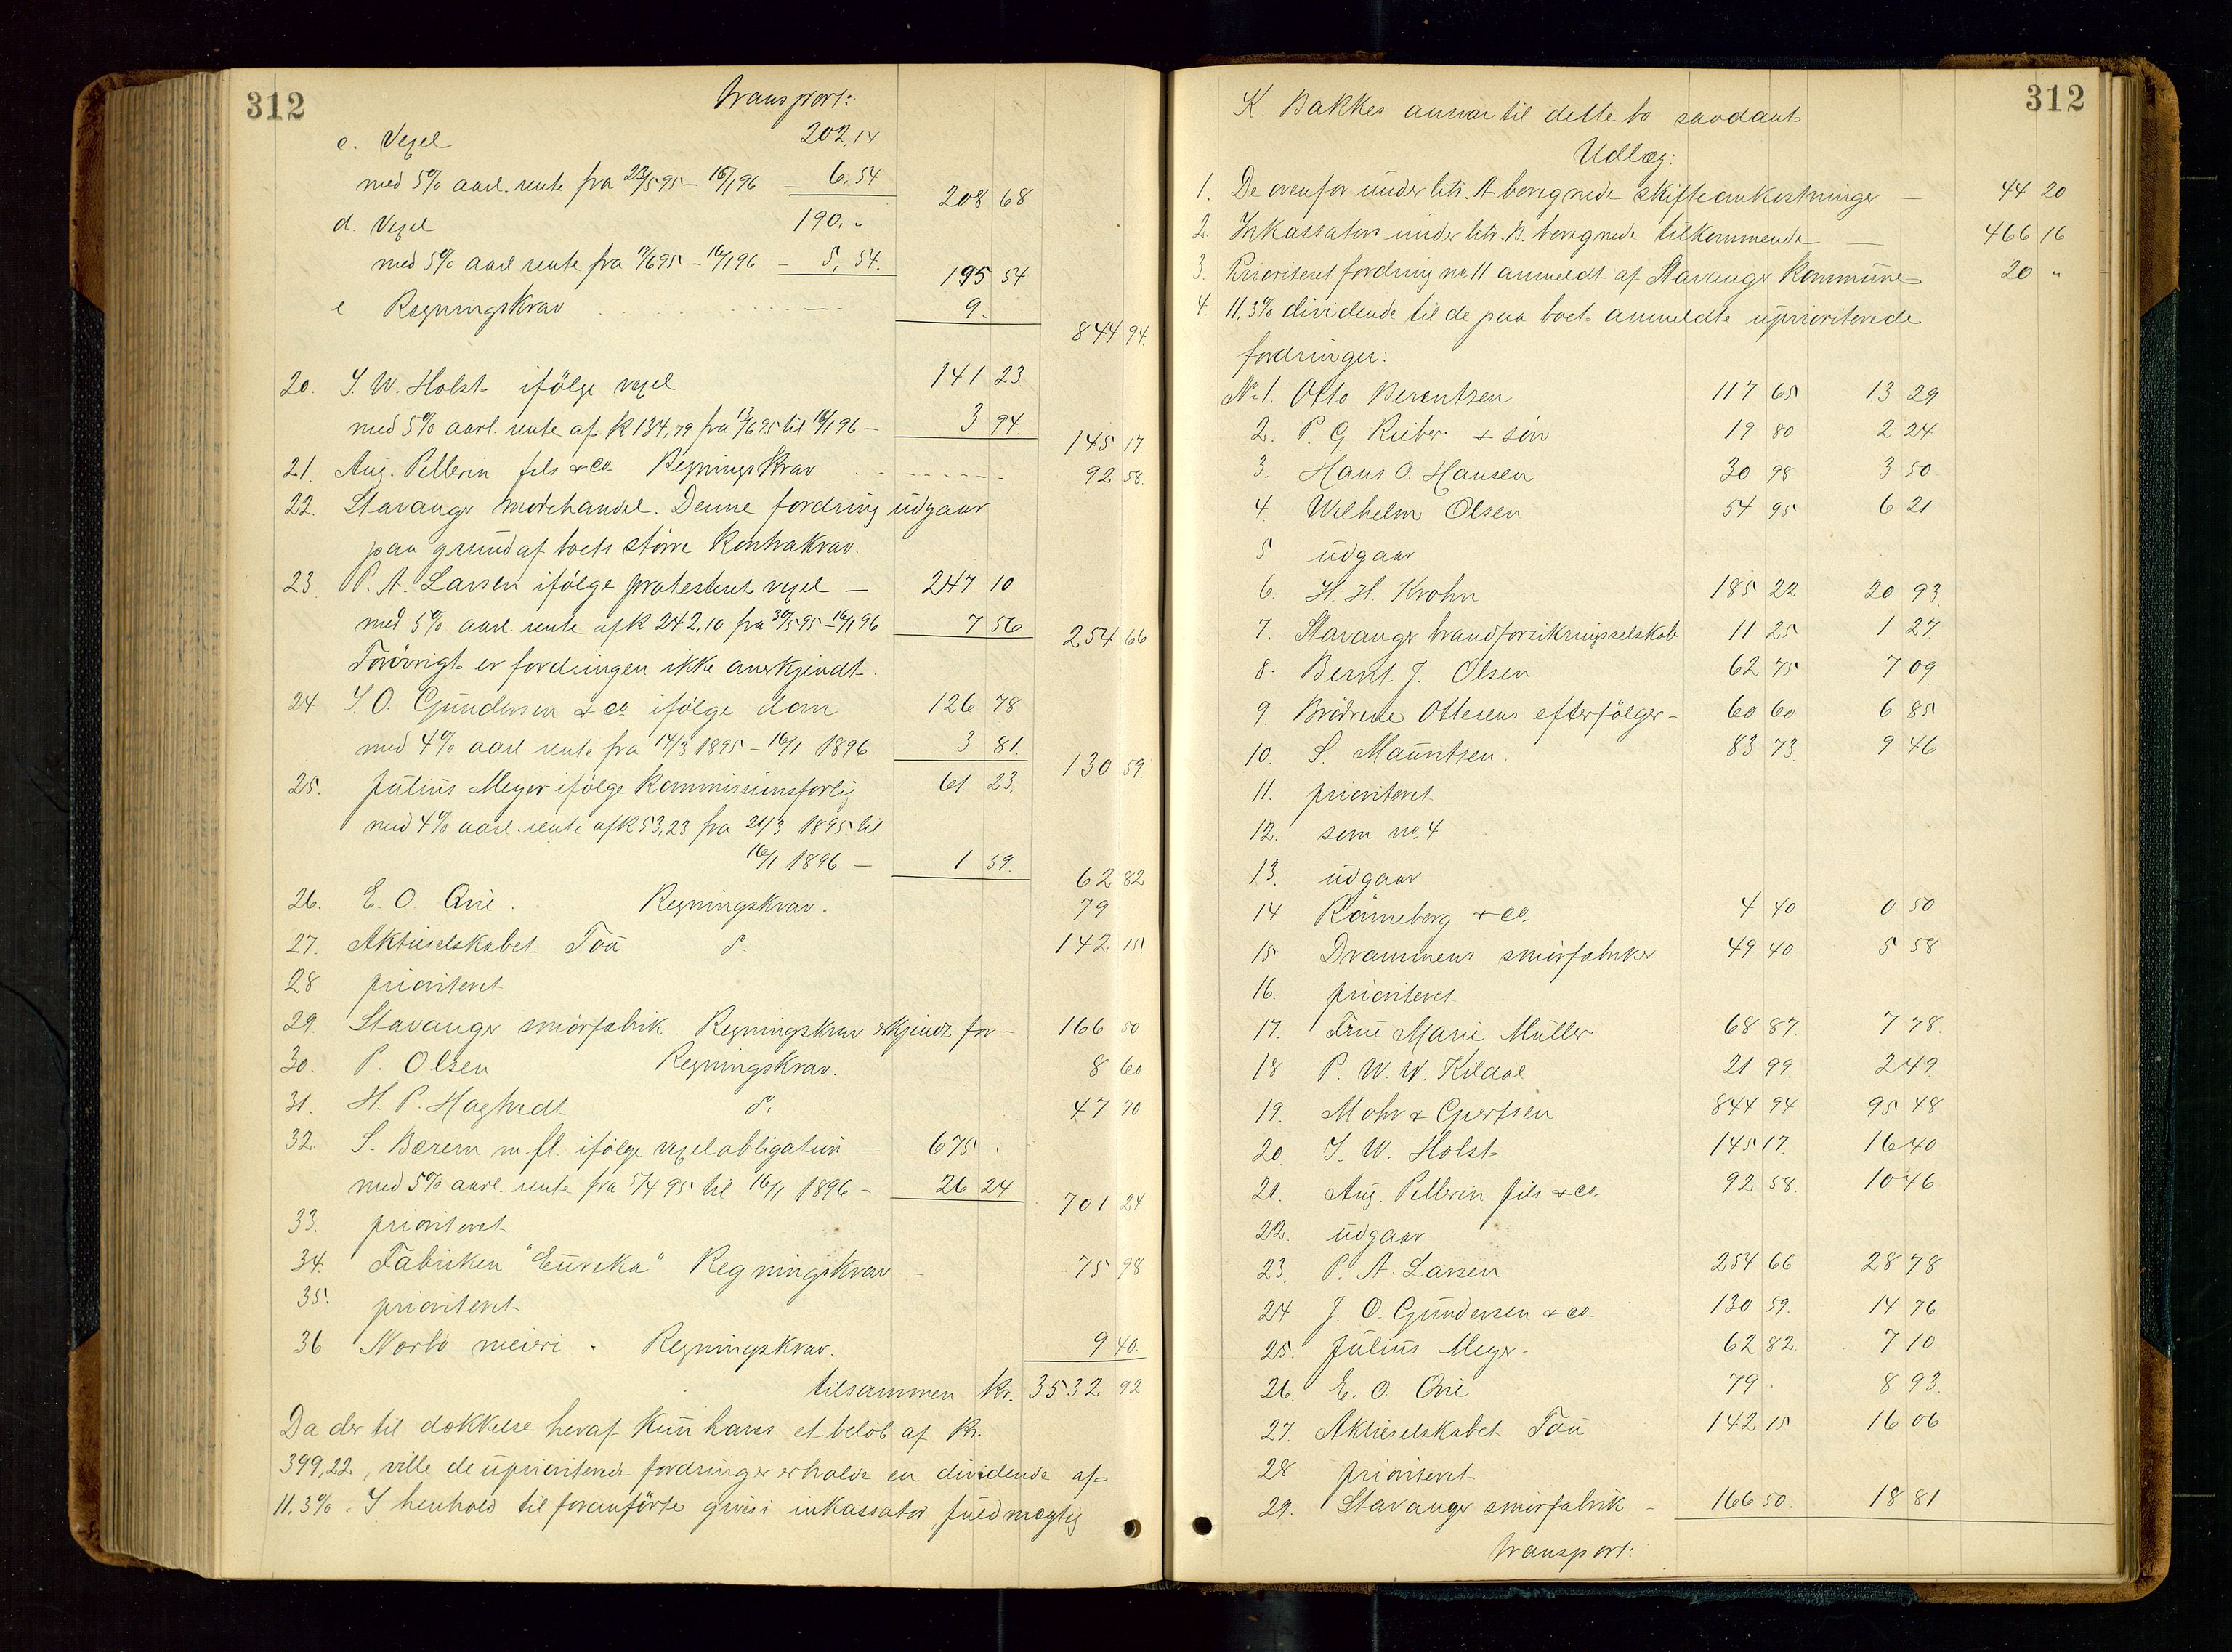 312
Transport:
c. Vexel 202,14
med 5% aarl. rente fra 23/5 95 – 16/1 96 – 6,54 208 68
d. Vexel 190, „
med 5% aarl rente fra 17/6 95 – 16/1 96 – 5,54. 195 54
e Regningskrav 9. 844 94.
20. I. W. Holst ifölge vexel 141 23.
med 5% aarl. rente af k 134,79 fra 17/6 95 til 16/1 96 – 3 94. 145 17.
21. Aug. Pellerin fils & co Regningskrav 92 58.
22. Stavanger smörhandel. Denne fordring udgaar
paa grund af boets större Kontrakrav.
23 P. A. Larsen ifölge protesteret vexel – 247 10
med 5% aarl. rente af k 242,10 fra 30/5 95 16/1 96 7 56 254 66
Forövrigt er fordringen ikke anerkjendt.
24 I. O. Gundersen & co ifölge dom 126 78
med 4% aarl rente fra 14/3 1895 – 16/1 1896 3 81. 130 59.
25. Julius Meyer ifölge Kommissionsforlig 61 23.
med 4% aarl. rente af k 53,23 fra 21/3 1895 til
16/1 1896 – 1 59. 62 82
26. E. O. Orre. Regningskrav. 79
27. Aktieselskabet Tou do 142 15.
28 prioriteret
29. Stavanger smörfabrik. Regningskrav erkjendt for – 166 50
30. P. Olsen Regningskrav. 8 60
31. H. P. Hagtvedt do. 47 70
32. S. Bærem m. fl. ifölge vexelobligation – 675 .
med 5% aarl. rente fra 5/4 95 til 16/1 1896 – 26 24 701 24
33. prioriteret
34. Fabriken "Eureka" Regningskrav – 75 98
35. prioriteret
36 Nærbö meieri. Regningskrav. 9 40.
tilsammen kr. 3532 92
Da der til dækkelse heraf kun haves et belöb af kr.
399,22, ville de uprioriterede fordringer erholde en dividende af
11,3%. I henhold til foranförte gives inkassator fuldmægtig
312
K. Bakkes ansvar til dette bo saadant
Udlæg:
1. De ovenfor under litr. A beregnede skifteomkostninger – 44 20
2. Inkassators under litr. B. beregnede tilkommende – 466 16
3. Prioriteret fordring nr 11 anmeldt af Stavanger Kommune 20 „
4. 11,3% dividende til de paa boet anmeldte uprioriterede
fordringer:
No 1. Otto Berentsen 117 65 13 29
2. P. G. Rieber & sön 19 80 2 24
3. Hans O. Hansen 30 98 3 50
4. Wilhelm Olsen 54 95 6 21
5 udgaar
6. H. H. Krohn 185 22 20 93.
7. Stavanger brandforsikringsselskab 11 25 1 27
8. Bernt J. Olsen 62 75 7 09
9. Brödrene Ottesens efterfölger – 60 60 6 85
10. S. Mauritzen. 83 73. 9 46
11. prioriteret
12. som no. 4
13. udgaar
14 Rönneberg & co. 4 40 0 50
15 Drammens smörfabriker 49 40 5 58
16. prioriteret
17. Frue Marie Müller 68 87. 7 78.
18 P. W. W. Kildal 21 99. 2 49.
19. Mohr & Gjertsen 844 94 95 48.
20. I. W. Holst 145 17. 16 40
21. Aug. Pellerin fils & co. 92 58. 10 46
22. udgaar
23. P. A. Larsen 254 66 28 78
24 J. O. Gundersen & co 130 59. 14 76
25. Julius Meyer 62 82. 7 10
26. E. O. Orre 79 . 8 93.
27. Aktieselskabet Tou 142 15 16 06
28 prioriteret
29. Stavanger smörfabrik – 166 50. 18 81
Transport: